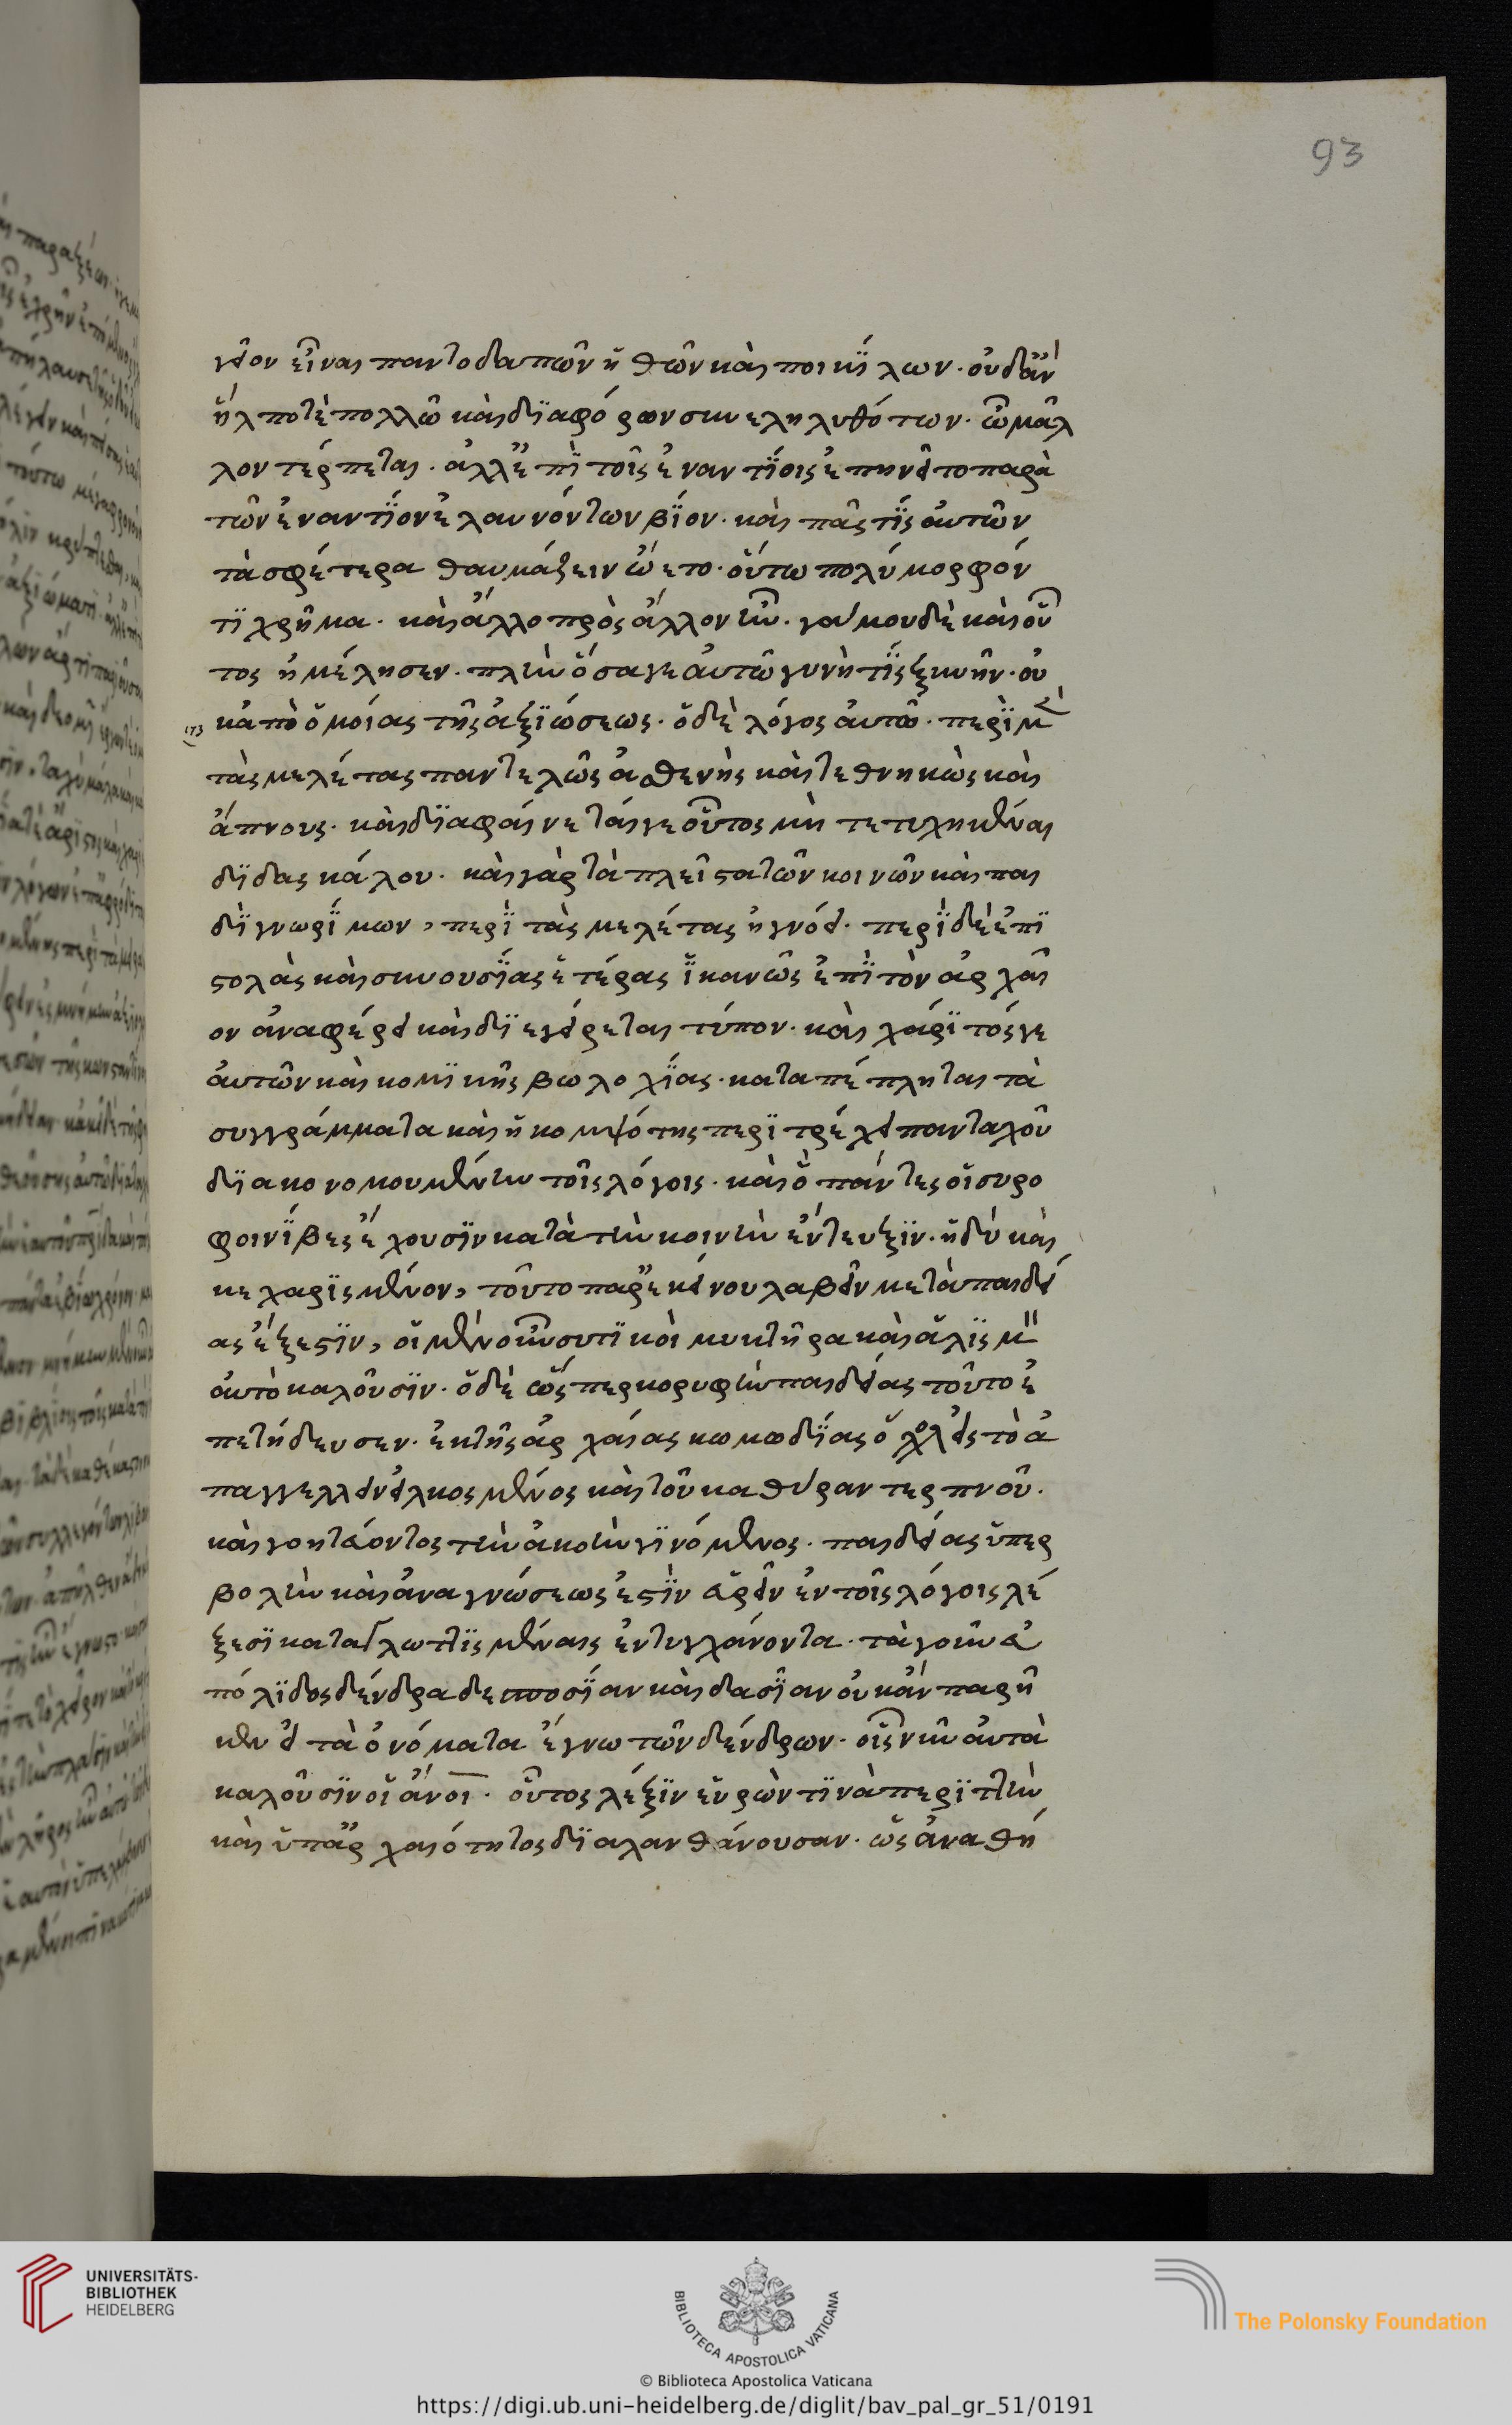 93
γειον εἶναι παντοδαπῶν ἠθῶν καὶ ποικίλων. οὐδ' ἂν
ἤλπισε πολλῶ καὶ διαφόρων συνεληλυθότων. ὧ μᾶλ
λον τέρπεται. ἀλλ' ἐπὶ τοῖς ἐναντίοις ἐπηνεῖτο παρὰ
τῶν ἐναντίον ἐλαυνόντων βίον. καὶ πᾶς τίς αὐτῶν
τὰ σφέτερα θαυμάζειν ὤετο. οὕτω πολύμορφόν
τι χρῆμα. καὶ ἄλλο πρὸς ἄλλον ἦν. γάμου δὲ καὶ οὗ
τος ἠμέλησεν. πλὴν ὅσα γε αὐτῶ γυνὴ τίς ξυνῆν. οὐ
κ ἀπὸ ὁμοίας τῆς ἀξιώσεως. ὁ δὲ λόγος αὐτῶ. περὶ μὲν
τὰς μελέτας παντελῶς ἀσθενὴς καὶ τεθνηκὼς καὶ
ἄπνους. καὶ διαφαίνεταί γε οὗτος μὴ τετυχηκέναι
διδασκάλου. καὶ γὰρ τὰ πλεῖστα τῶν κοινῶν καὶ παι
δὶ γνωρίμων, περὶ τὰς μελέτας ἠγνόει. περὶ δὲ ἐπι
στολὰς καὶ συνουσίας ἑτέρας ἱκανῶς ἐπὶ τὸν ἀρχαῖ
ον ἀναφέρει καὶ διεγείρεται τύπον. καὶ χάριτός γε
αὐτῶν καὶ κομικῆς βωλοχίας. καταπέπληται τὰ
συγγράμματα καὶ ἡ κομψότης περιτρέχει πανταχοῦ
διακονουμένη τοῖς λόγοις. καὶ ὃ πάντες οἱ συρο
φοινίκες ἔχουσιν κατὰ τὴν κοινὴν ἔντευξιν. ἡδὺ καὶ
κεχαρισμένον, τοῦτο παρ' ἐκείνου λαβεῖν μετὰ παιδεί
ας ἔξεστιν, οἱ μὲν οὖν ἀττικοὶ μυκτῆρα καὶ
αὐτὸ καλοῦσιν. ὁ δὲ ὥσπερ κορυφὴν παιδείας τοῦτο ἐ
πετήδευσεν. ἐκ τῆς ἀρχαίας κωμωδίας ὅλος εἰς τὸ ἀ
παγγέλλειν ἑλκόμενος καὶ τοῦ κατὰ θύραν τερπνοῦ.
καὶ γοητεύοντος τὴν ἀκοὴν γινόμενος. παιδείας ὑπερ
βολὴν καὶ ἀναγνώσεως ἐστὶν εὑρεῖν ἐν τοῖς λόγοις λέ
ξεσι κατεγλωττισμέναις ἐντυγχάνοντα. τὰ γοῦν εὐ
πόλιδος δένδρα δεποσίαν καὶ δασῖαν οὐκ ἂν παρῆ
κεν εἰ τὰ ὀνόματα ἔγνω τῶν δένδρων. οἷς νῦν αὐτὰ
καλοῦσιν οἱ ἄνοι. οὗτος λέξιν εὑρών τινὰ περιττὴν
καὶ ὑπ' ἀρχαιότητος διαλανθάνουσαν. ὡς ἀναθή
UNIVERSITÄTS-
BIBLIOTHEK
HEIDELBERG
BIBLIOTECA APOSTOLICA VATICANA
The Polonsky Foundation
© Biblioteca Apostolica Vaticana
https://digi.ub.uni-heidelberg.de/diglit/bav_pal_gr_51/0191